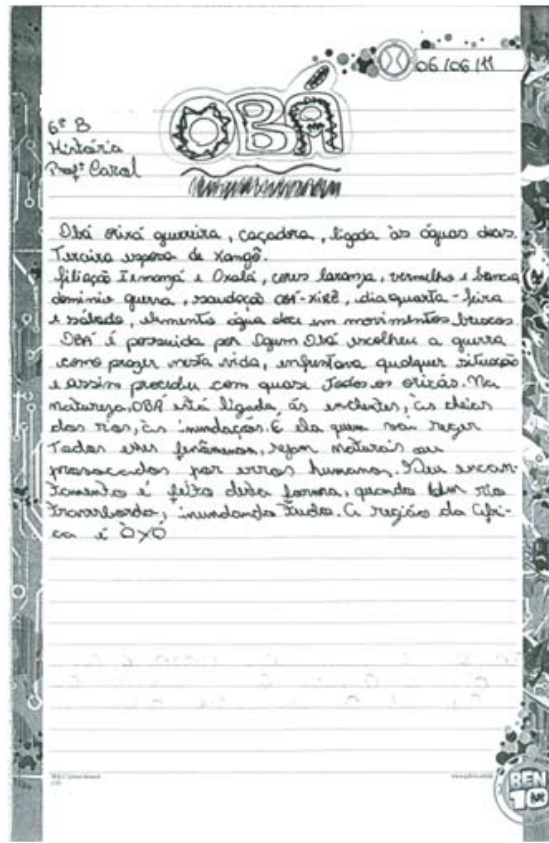 06/06/11
OBÁ
6ª B
História
Profª Carol
Obá orixá guerreira, caçadora, ligada às águas doces.
Terceira esposa de Xangô.
filiação Iemanjá e Oxalá, cores laranja, vermelho e branca
dominio guerra, saudação obá-xirê, dia quarta-feira
e sábado, elemento água doce em movimentos bruscos
OBÁ é possuida por Ogum Obá escolheu a guerra
como prazer nesta vida, enfrentava qualquer situação
e assim procedeu com quase todos os orixás. Na
natureza, OBÁ está ligada, ás enchentes, às cheias
dos rios, às inundações. E ela quem vai reger
Todos esses fenômenos, sejam naturais ou
provocados por erros humanos. Seu encan-
tamento é feito desta forma, quando um rio
transborda, inundando tudo. A região da Áfri-
ca é ÒYÓ
BEN
10